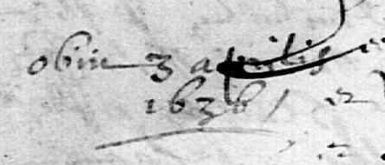 obiit 3 aprilis
1636